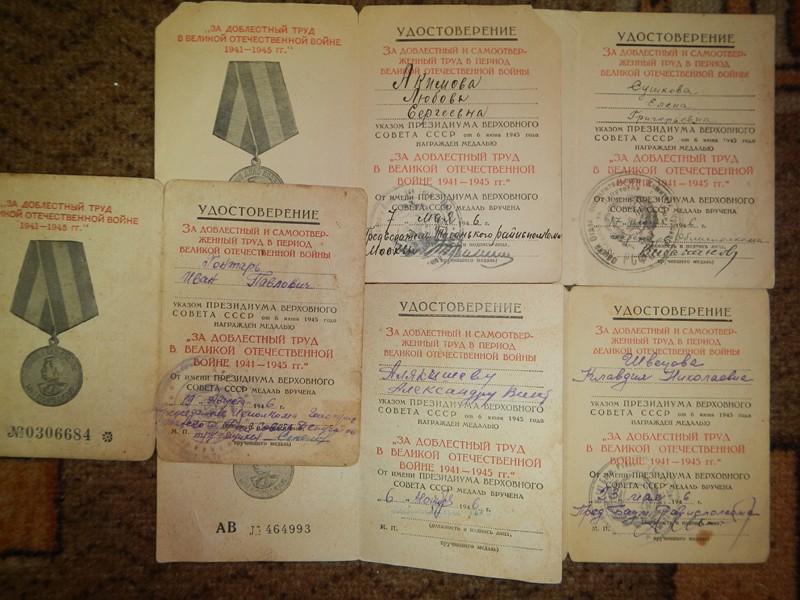 "ЗА ДОБЛЕСТНЫЙ ТРУД
В ВЕЛИКОЙ ОТЕЧЕСТВЕННОЙ ВОЙНЕ
1941—1945 гг."
УДОСТОВЕРЕНИЕ
ЗА ДОБЛЕСТНЫЙ И САМООТВЕР-
ЖЕННЫЙ ТРУД В ПЕРИОД
ВЕЛИКОЙ ОТЕЧЕСТВЕННОЙ ВОЙНЫ
Акимова
Любовь
Сергеевна
УКАЗОМ ПРЕЗИДИУМА ВЕРХОВНОГО
СОВЕТА СССР от 6 июня 1945 года
НАГРАЖДЕН МЕДАЛЬЮ
"ЗА ДОБЛЕСТНЫЙ ТРУД
В ВЕЛИКОЙ ОТЕЧЕСТВЕННОЙ
ВОЙНЕ 1941—1945 гг."
От имени ПРЕЗИДИУМА ВЕРХОВНОГО
СОВЕТА СССР МЕДАЛЬ ВРУЧЕНА
7 мая 1946
Москвы
УДОСТОВЕРЕНИЕ
ЗА ДОБЛЕСТНЫЙ И САМООТВЕР-
ЖЕННЫЙ ТРУД В ПЕРИОД
ВЕЛИКОЙ ОТЕЧЕСТВЕННОЙ ВОЙНЫ
Сушкова
Елена
Григорьевна
УКАЗОМ ПРЕЗИДИУМА ВЕРХОВНОГО
СОВЕТА СССР от 6 июня 1945 года
НАГРАЖДЕН МЕДАЛЬЮ
"ЗА ДОБЛЕСТНЫЙ ТРУД
В ВЕЛИКОЙ ОТЕЧЕСТВЕННОЙ
ВОЙНЕ 1941—1945 гг."
От имени ПРЕЗИДИУМА ВЕРХОВНОГО
СОВЕТА СССР МЕДАЛЬ ВРУЧЕНА
17
вручившего медаль)
"ЗА ДОБЛЕСТНЫЙ ТРУД
ВЕЛИКОЙ ОТЕЧЕСТВЕННОЙ ВОЙНЕ
1941—1945 гг."
№0306684
УДОСТОВЕРЕНИЕ
ЗА ДОБЛЕСТНЫЙ И САМООТВЕР-
ЖЕННЫЙ ТРУД В ПЕРИОД
ВЕЛИКОЙ ОТЕЧЕСТВЕННОЙ ВОЙНЫ
Гонтарь
Иван Павлович
УКАЗОМ ПРЕЗИДИУМА ВЕРХОВНОГО
СОВЕТА СССР от 6 июня 1945 года
НАГРАЖДЕН МЕДАЛЬЮ
"ЗА ДОБЛЕСТНЫЙ ТРУД
В ВЕЛИКОЙ ОТЕЧЕСТВЕННОЙ
ВОЙНЕ 1941—1945 гг."
От имени ПРЕЗИДИУМА ВЕРХОВНОГО
СОВЕТА СССР МЕДАЛЬ ВРУЧЕНА
19 1946
М. П.
вручившего медаль)
АВ № 464993
УДОСТОВЕРЕНИЕ
ЗА ДОБЛЕСТНЫЙ И САМООТВЕР-
ЖЕННЫЙ ТРУД В ПЕРИОД
ВЕЛИКОЙ ОТЕЧЕСТВЕННОЙ ВОЙНЫ
Александру
УКАЗОМ ПРЕЗИДИУМА ВЕРХОВНОГО
СОВЕТА СССР от 6 июня 1945 года
НАГРАЖДЕН МЕДАЛЬЮ
"ЗА ДОБЛЕСТНЫЙ ТРУД
В ВЕЛИКОЙ ОТЕЧЕСТВЕННОЙ
ВОЙНЕ 1941—1945 гг."
От имени ПРЕЗИДИУМА ВЕРХОВНОГО
СОВЕТА СССР МЕДАЛЬ ВРУЧЕНА
6 1946
М. П.
(должность и подпись лица,
вручившего медаль)
УДОСТОВЕРЕНИЕ
ЗА ДОБЛЕСТНЫЙ И САМООТВЕР-
ЖЕННЫЙ ТРУД В ПЕРИОД
ВЕЛИКОЙ ОТЕЧЕСТВЕННОЙ ВОЙНЫ
Швецова
Клавдия Николаевна
УКАЗОМ ПРЕЗИДИУМА ВЕРХОВНОГО
СОВЕТА СССР от 6 июня 1945 года
НАГРАЖДЕН МЕДАЛЬЮ
"ЗА ДОБЛЕСТНЫЙ ТРУД
В ВЕЛИКОЙ ОТЕЧЕСТВЕННОЙ
ВОЙНЕ 1941—1945 гг."
От имени ПРЕЗИДИУМА ВЕРХОВНОГО
СОВЕТА СССР МЕДАЛЬ ВРУЧЕНА
23 мая 1946
М. П.
вручившего медаль)